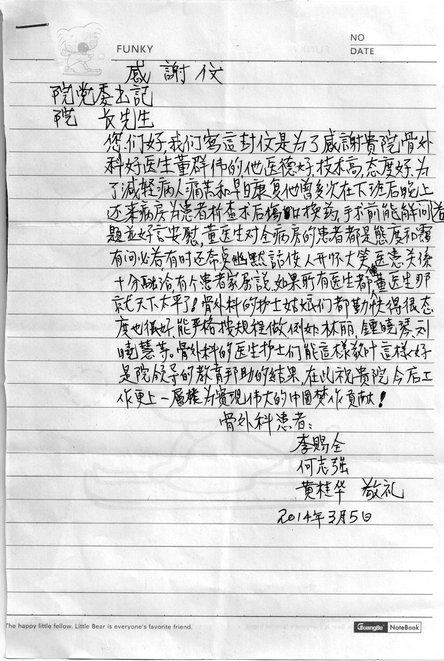 FUNKY
NO
DATE
感謝仪
院党委书記
院 长先生
您们好,我们寫這封仪是为了感謝貴院骨外
科好医生董群伟的他医德好,技术高,态度好,为
了减轻病人痛苦和早日康复他曾多次在下班后晚上
还来病房为患者检查术后傷口换药,手术前能解问道
题並好言安慰,董医生对全病房的患者都是態度和靄
有问必答有时还幽默話使人开怀大笑医患关係
十分融洽有个患者家属説,如果所有医生都像董医生那
就天下太平了!骨外科的护士姑娘们都勤快得很态
度也很好,能严格按規程做例如林丽,鍾曉琴,刘
曉慧等。骨外科的医生护士们能這様敬业這様好
是院領导的教育邦助的结果,在此祝貴院今后工
作更上一層楼为實現伟大的中国梦作贡献!
骨外科患者:
李賜全
何志强
黄桂华 敬礼
2014年3月5日
The happy little fellow. Little Bear is everyone's favorite friend.
GuangBo NoteBook